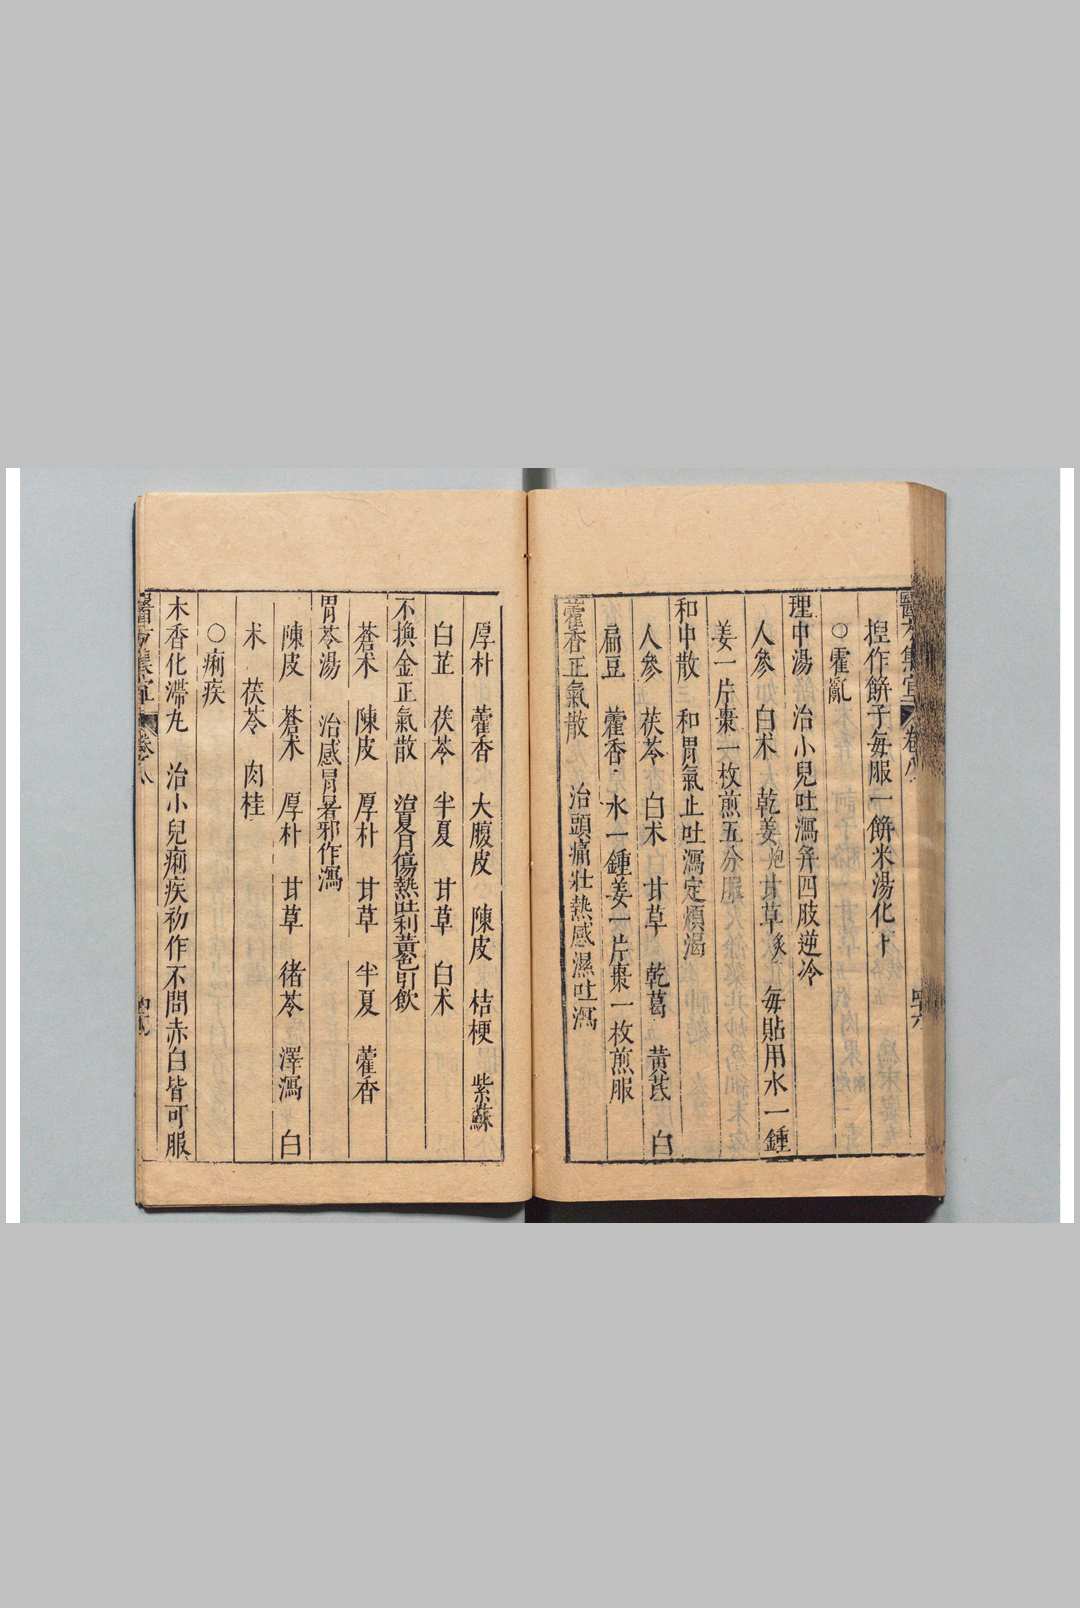 醫方集宜 卷八 四六
捏作餅子每服一餅米湯化下
○霍亂
理中湯 治小兒吐瀉并四肢逆冷
人參 白朮 乾姜炮 甘草炙 每貼用水一鍾
姜一片棗一枚煎五分服
和中散 和胃氣止吐瀉定煩渴
人參 茯苓 白朮 甘草 乾葛 黄芪 白
扁豆 藿香 水一鍾姜一片棗一枚煎服
藿香正氣散 治頭痛壯熱感濕吐瀉
厚朴 藿香 大腹皮 陳皮 桔梗 紫蘇
白芷 茯苓 半夏 甘草 白朮
不換金正氣散 治夏月傷熱吐利黃色引飲
蒼朮 陳皮 厚朴 甘草 半夏 藿香
胃苓湯 治感冐暑邪作瀉
陳皮 蒼朮 厚朴 甘草 猪苓 澤瀉 白
朮 茯苓 肉桂
○痢疾
木香化滯丸 治小兒痢疾初作不問赤白皆可服
醫方集宜 卷之八